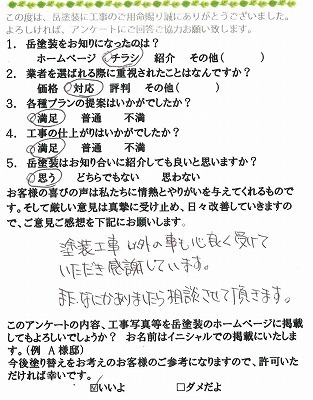 この度は、岳塗装に工事のご用命賜り誠にありがとうございました。
よろしければ、アンケートにご回答ご協力お願い致します。
1. 岳塗装をお知りになったのは?
ホームページ チラシ 紹介 その他( )
2. 業者を選ばれる際に重視されたことはなんですか?
価格 対応 評判 その他( )
3. 各種プランの提案はいかがでしたか?
満足 普通 不満
4. 工事の仕上がりはいかがでしたか?
満足 普通 不満
5. 岳塗装はお知り合いに紹介しても良いと思いますか?
思う どちらでもない 思わない
お客様の喜びの声は私たちに情熱とやりがいを与えてくれるものです。そして厳しい意見は真摯に受け止め、日々改善していきますので、ご意見ご感想を下記にお願いします。
塗装工事以外の事も心良く受けて
いただき感謝しています。
またなにかありましたら相談させて頂きます。
このアンケートの内容、工事写真等を岳塗装のホームページに掲載
してもよろしいでしょうか? お名前はイニシャルでの掲載にいたしま
す。(例 A様邸)
今後塗り替えをお考えのお客様のご参考になりますので、許可いた
だければ幸いです。
☑いいよ □ダメだよ